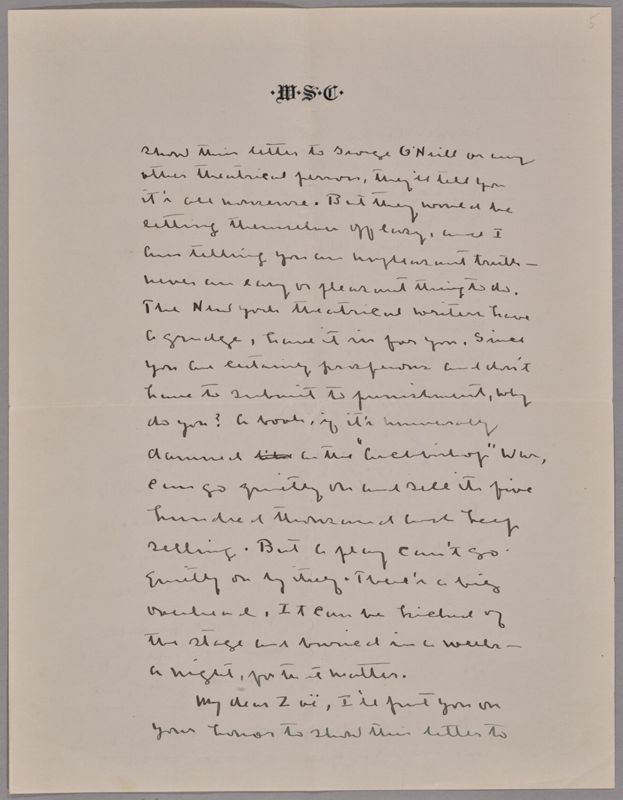 5
·W·S·C·
show this letter to George O'Neill or any
other theatrical person, they'll tell you
it's all nonsense. But they would be
letting themselves off easy, and I
am telling you an unpleasant truth—
never an easy or pleasant thing to do.
The New York theatrical writers have
a grudge, have it in for you. Since
you are certainly prosperous and don't
have to submit to punishment, why
do you? A book, if it's universally
damned like as the "Archbishop" was,
can go quietly on and sell its five
hundred thousand and keep
selling. But a play can't go
quietly on by itself. There's a big
overhead. It can be kicked off
the stage and buried in a week—
a night, for that matter.
My dear Zoë, I'll put you on
your honor to show this letter to